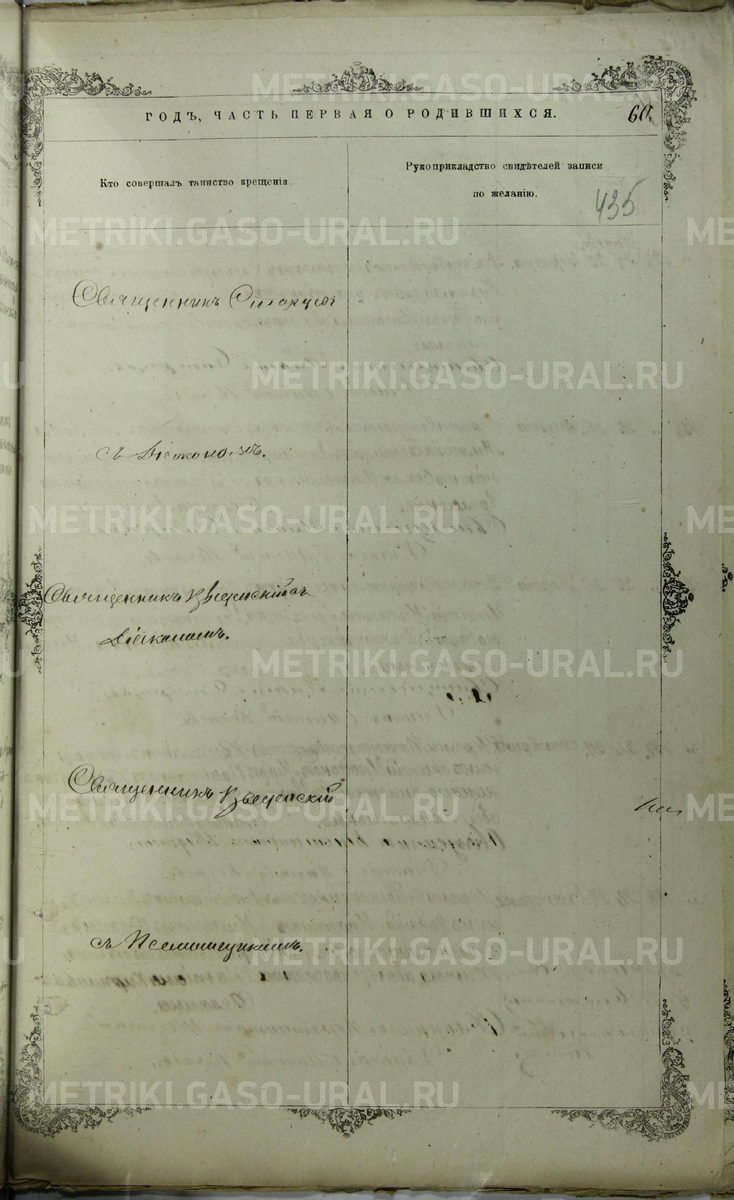 ГОДЪ, ЧАСТЬ ПЕРВАЯ О РОДИВШИХСЯ.
60.
Кто совершалъ таинство крещенія.
Рукоприкладство свидѣтелей записи
по желанію.
435
Священникъ
съ Діакономъ.
Священникъ Введенскій съ
Діакономъ.
Священникъ Введенскій
съ Псаломщикомъ.
METRIKI.GASO-URAL.RU